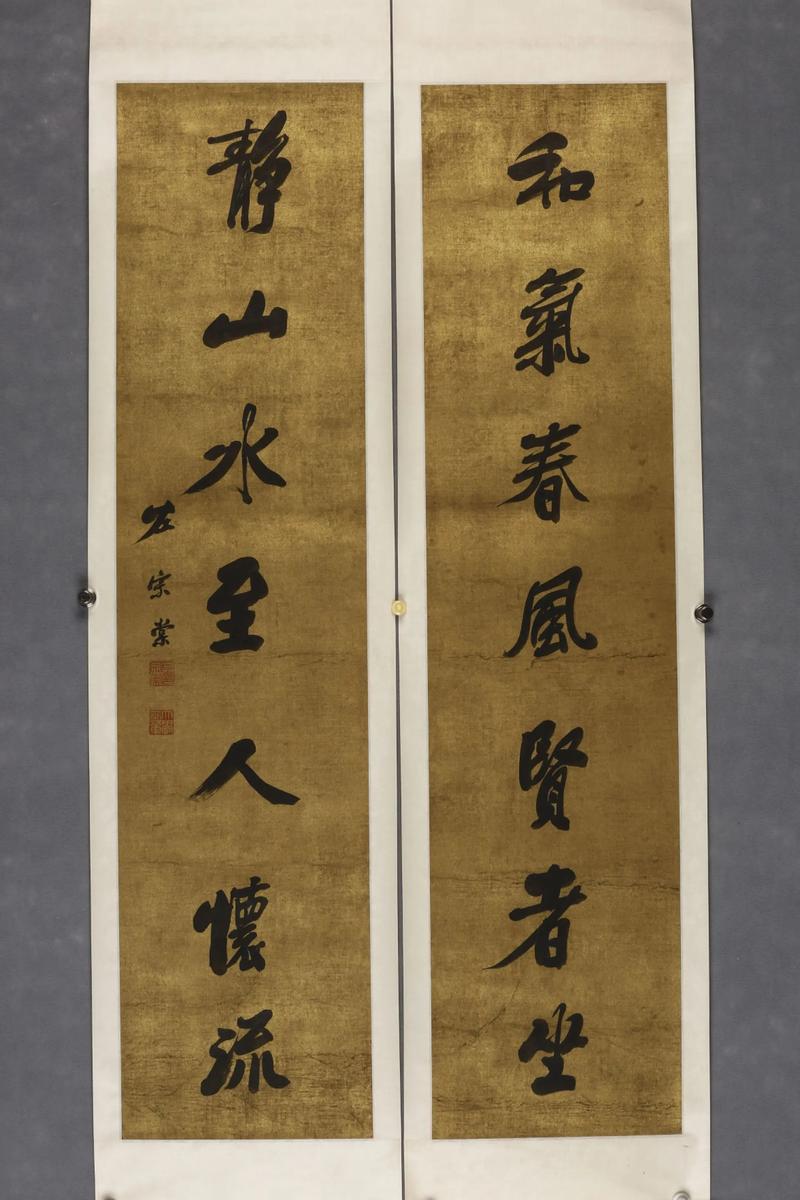 和氣春風賢者坐
靜山水至人懷流
左宗棠